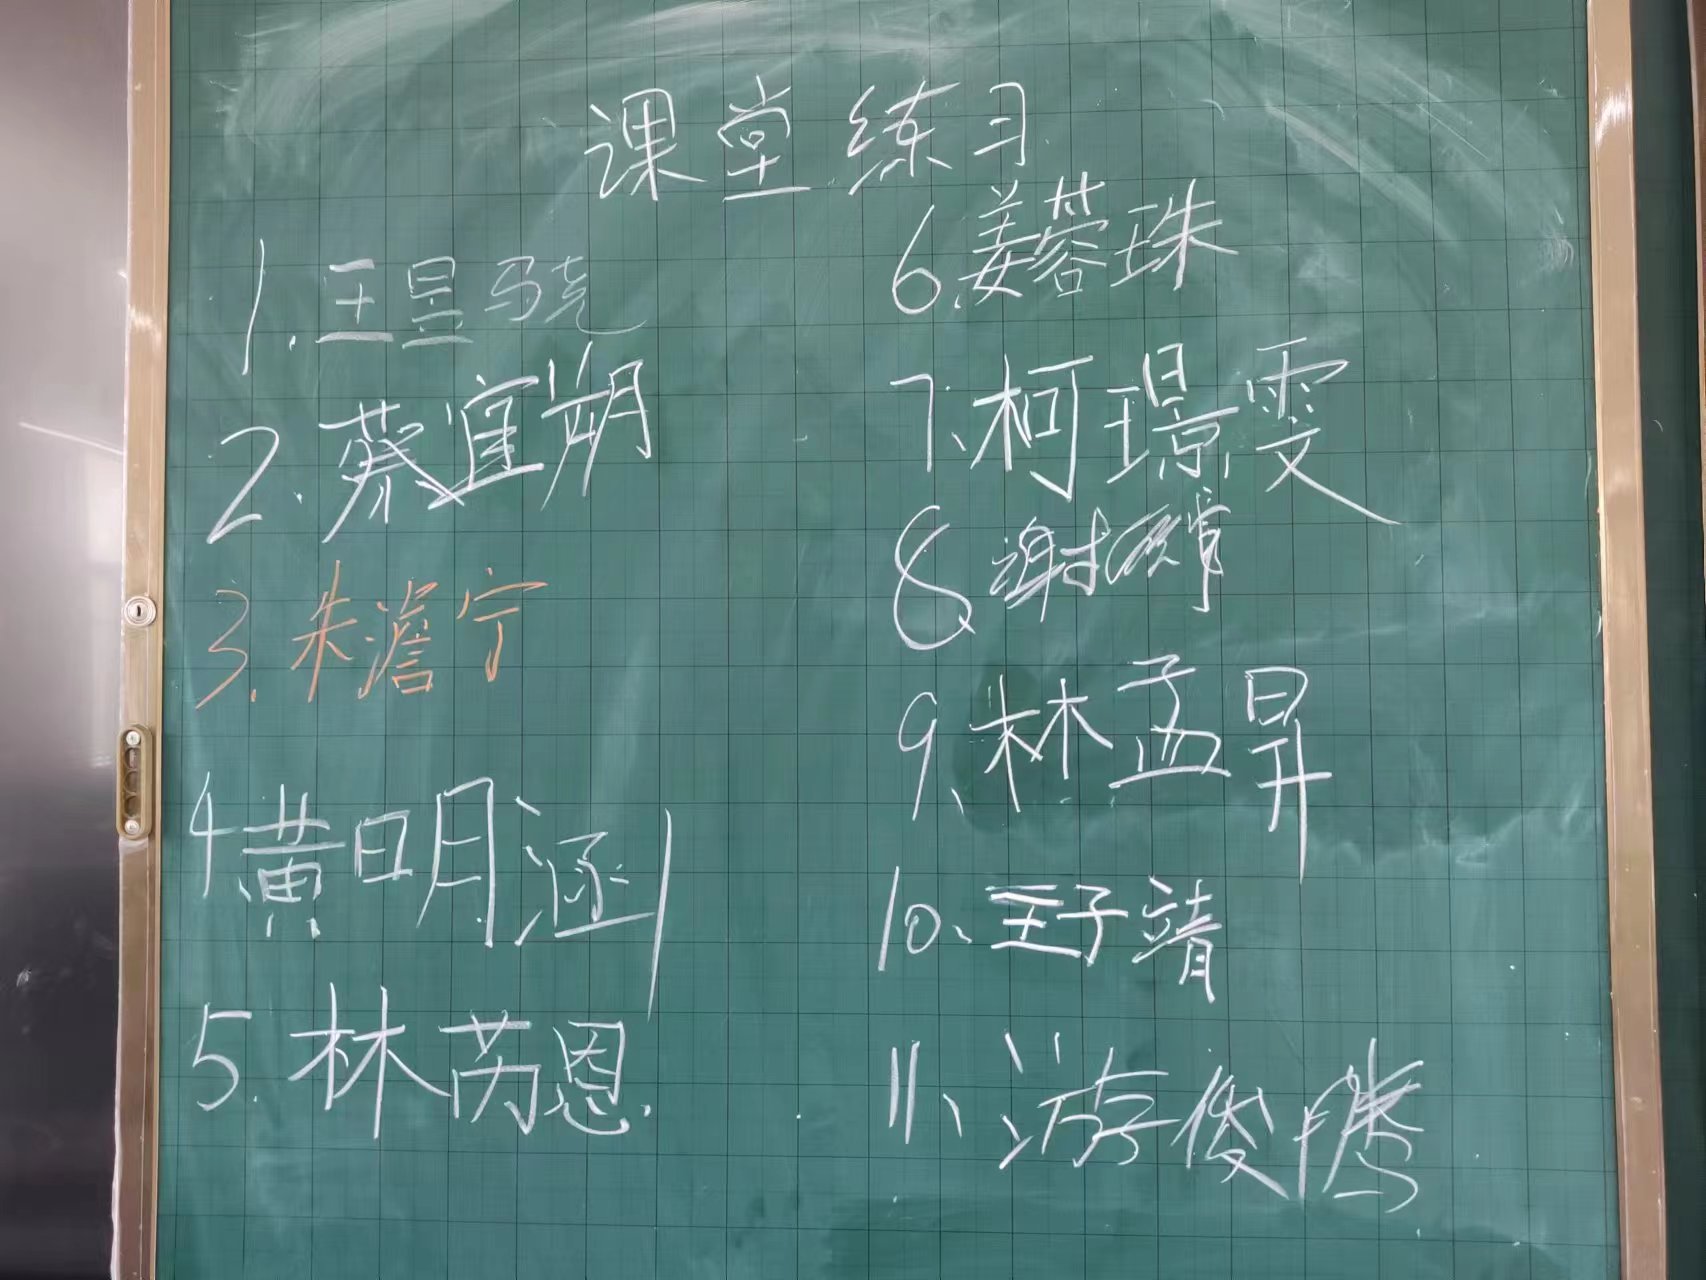 课堂练习
1.王昱骁
2.蔡宜朔
3.朱澹宁
4黄明涵
5.林芮恩.
6.姜蓉珠
7、柯璟雯
8、谢
9、林孟昇
10、王子靖
11、游俊腾